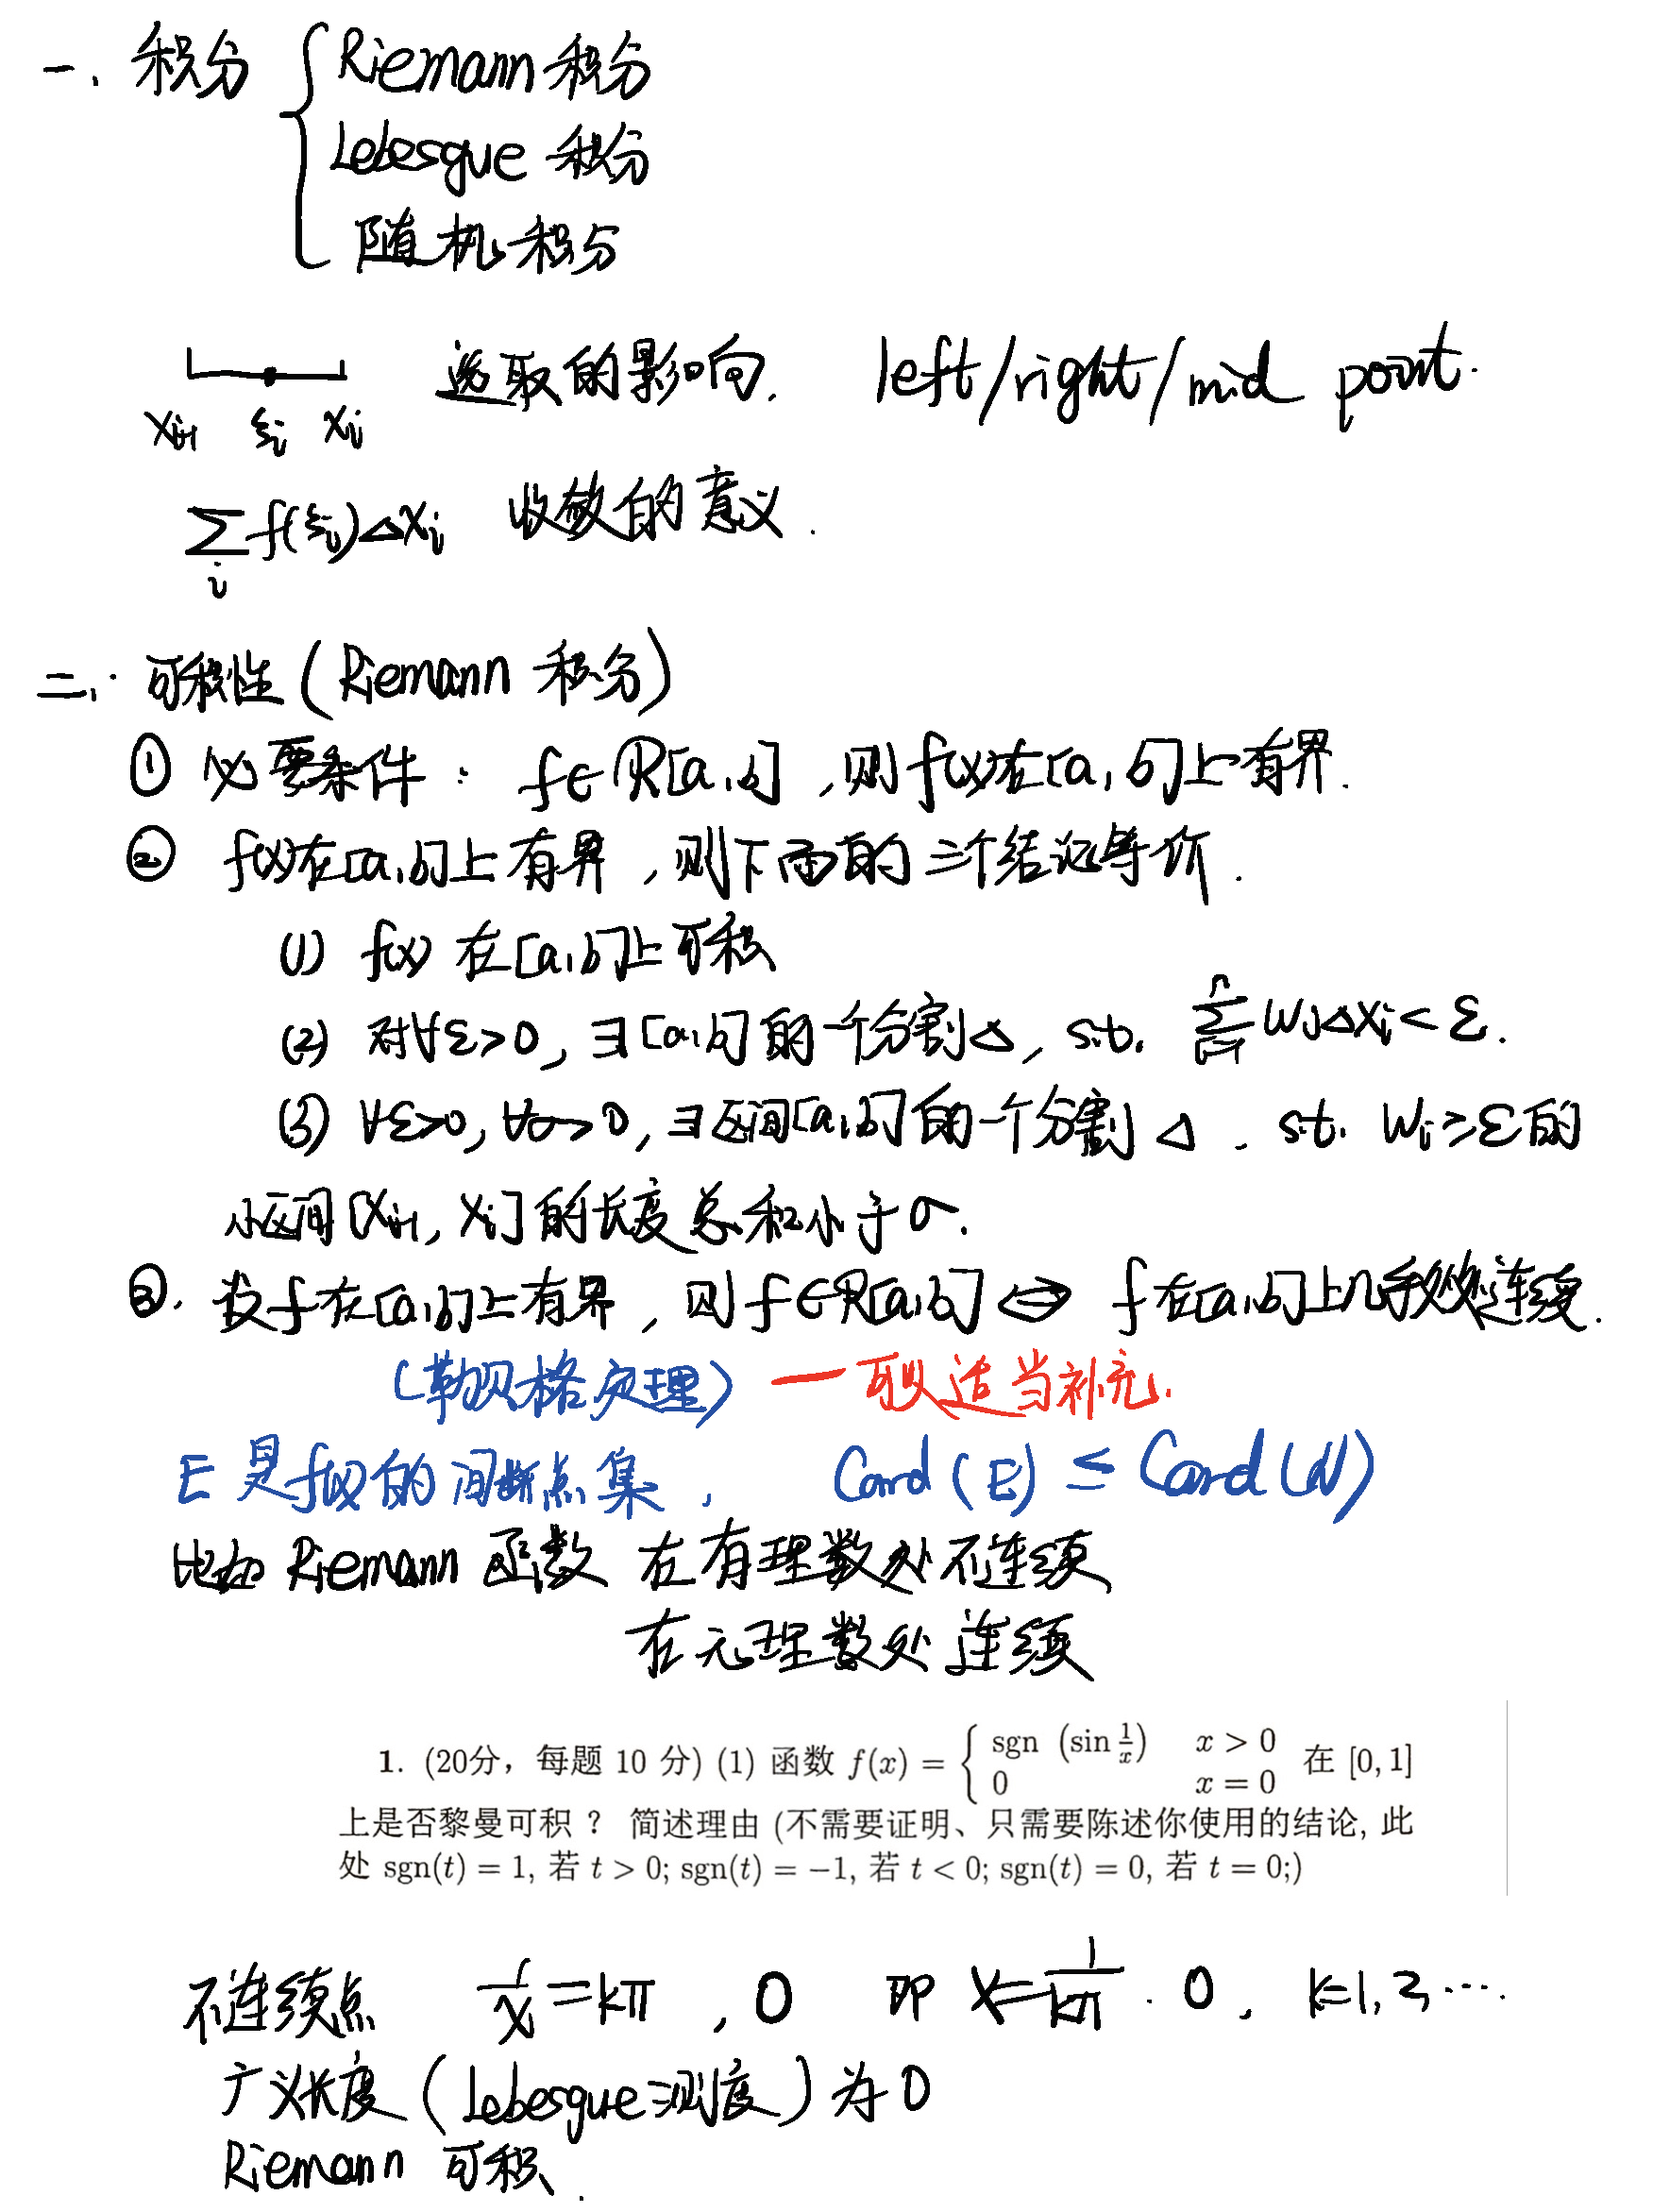 一、积分 { Riemann 积分
Lebesgue 积分
随机积分
x_{i-1} ξ_i x_i 选取的影响. left/right/mid point.
∑_i f(ξ_i)Δx_i 收敛的意义.
二、可积性(Riemann 积分)
① 必要条件: f∈R[a,b], 则f(x)在[a,b]上有界.
② f(x)在[a,b]上有界, 则下面的三个结论等价.
(1) f(x) 在[a,b]上可积
(2) 对∀ε>0, ∃[a,b]的一个分割Δ, s.t. ∑_{i=1}^{n} w_iΔx_i<ε.
(3) ∀ε>0, ∀σ>0, ∃区间[a,b]的一个分割Δ. s.t. w_i≥ε的
小区间[x_{i-1}, x_i]的长度总和小于σ.
③. 设f在[a,b]上有界, 则f∈R[a,b] ⇔ f在[a,b]上几乎处处连续.
(勒贝格定理) 一 可以适当补充.
E是f(x)的间断点集, Card(E)≤Card(N)
比如 Riemann 函数 在有理数处不连续
在无理数处连续
1. (20分，每题 10 分) (1) 函数 f(x) = { sgn (sin 1/x) x > 0
0 x = 0 在 [0, 1]
上是否黎曼可积？ 简述理由 (不需要证明、只需要陈述你使用的结论, 此
处 sgn(t) = 1, 若 t > 0; sgn(t) = −1, 若 t < 0; sgn(t) = 0, 若 t = 0;)
不连续点 1/x=kπ, 0 即 x=1/kπ. 0, k=1,2,…
广义长度(Lebesgue测度)为0
Riemann 可积.